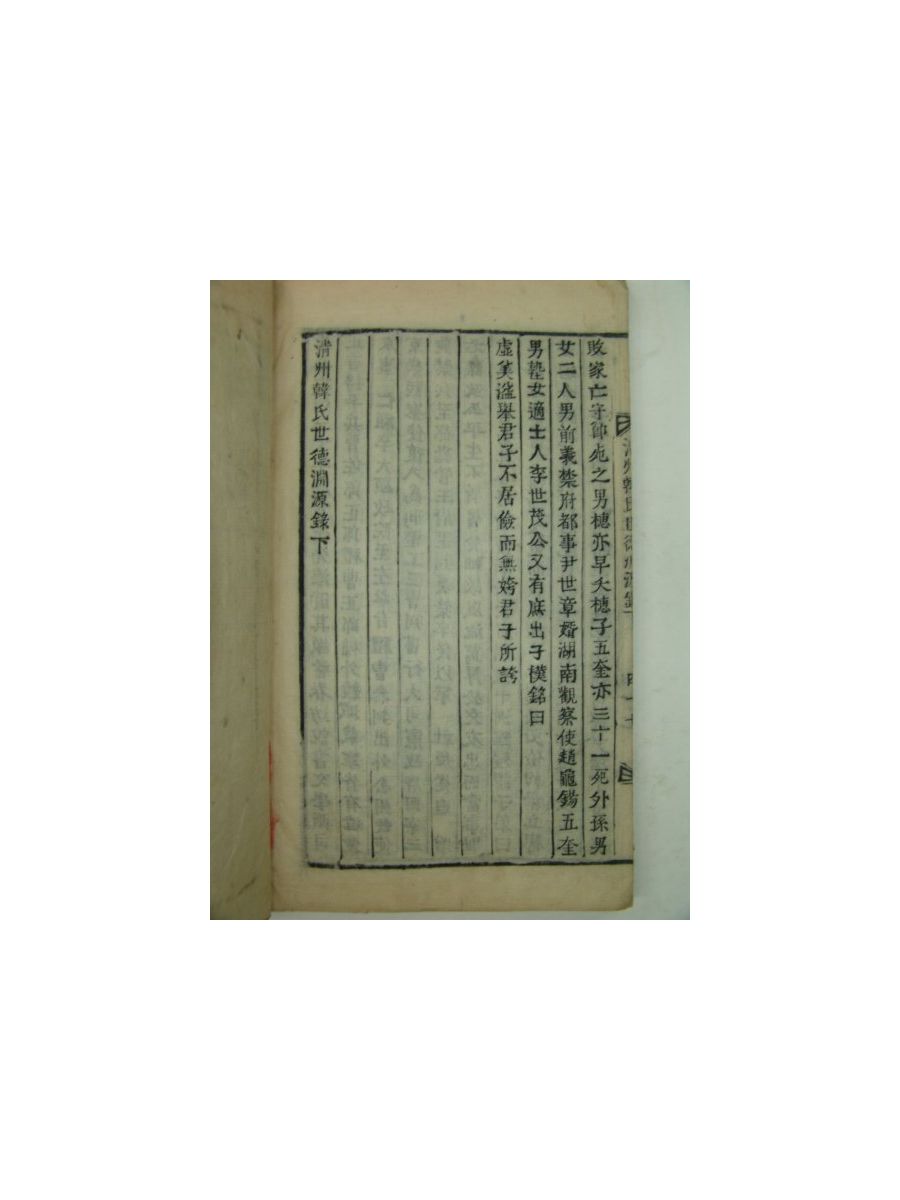 敗家亡守節死之男橞亦早夭橞子五奎亦三十一死外孫男
女二人男前義禁府都事尹世章婿湖南觀察使趙龜錫五奎
男墊女適士人李世茂公又有庶出子樸銘曰
虛美溢舉君子不居儉而無姱君子所誇
清州韓氏世德淵源錄下